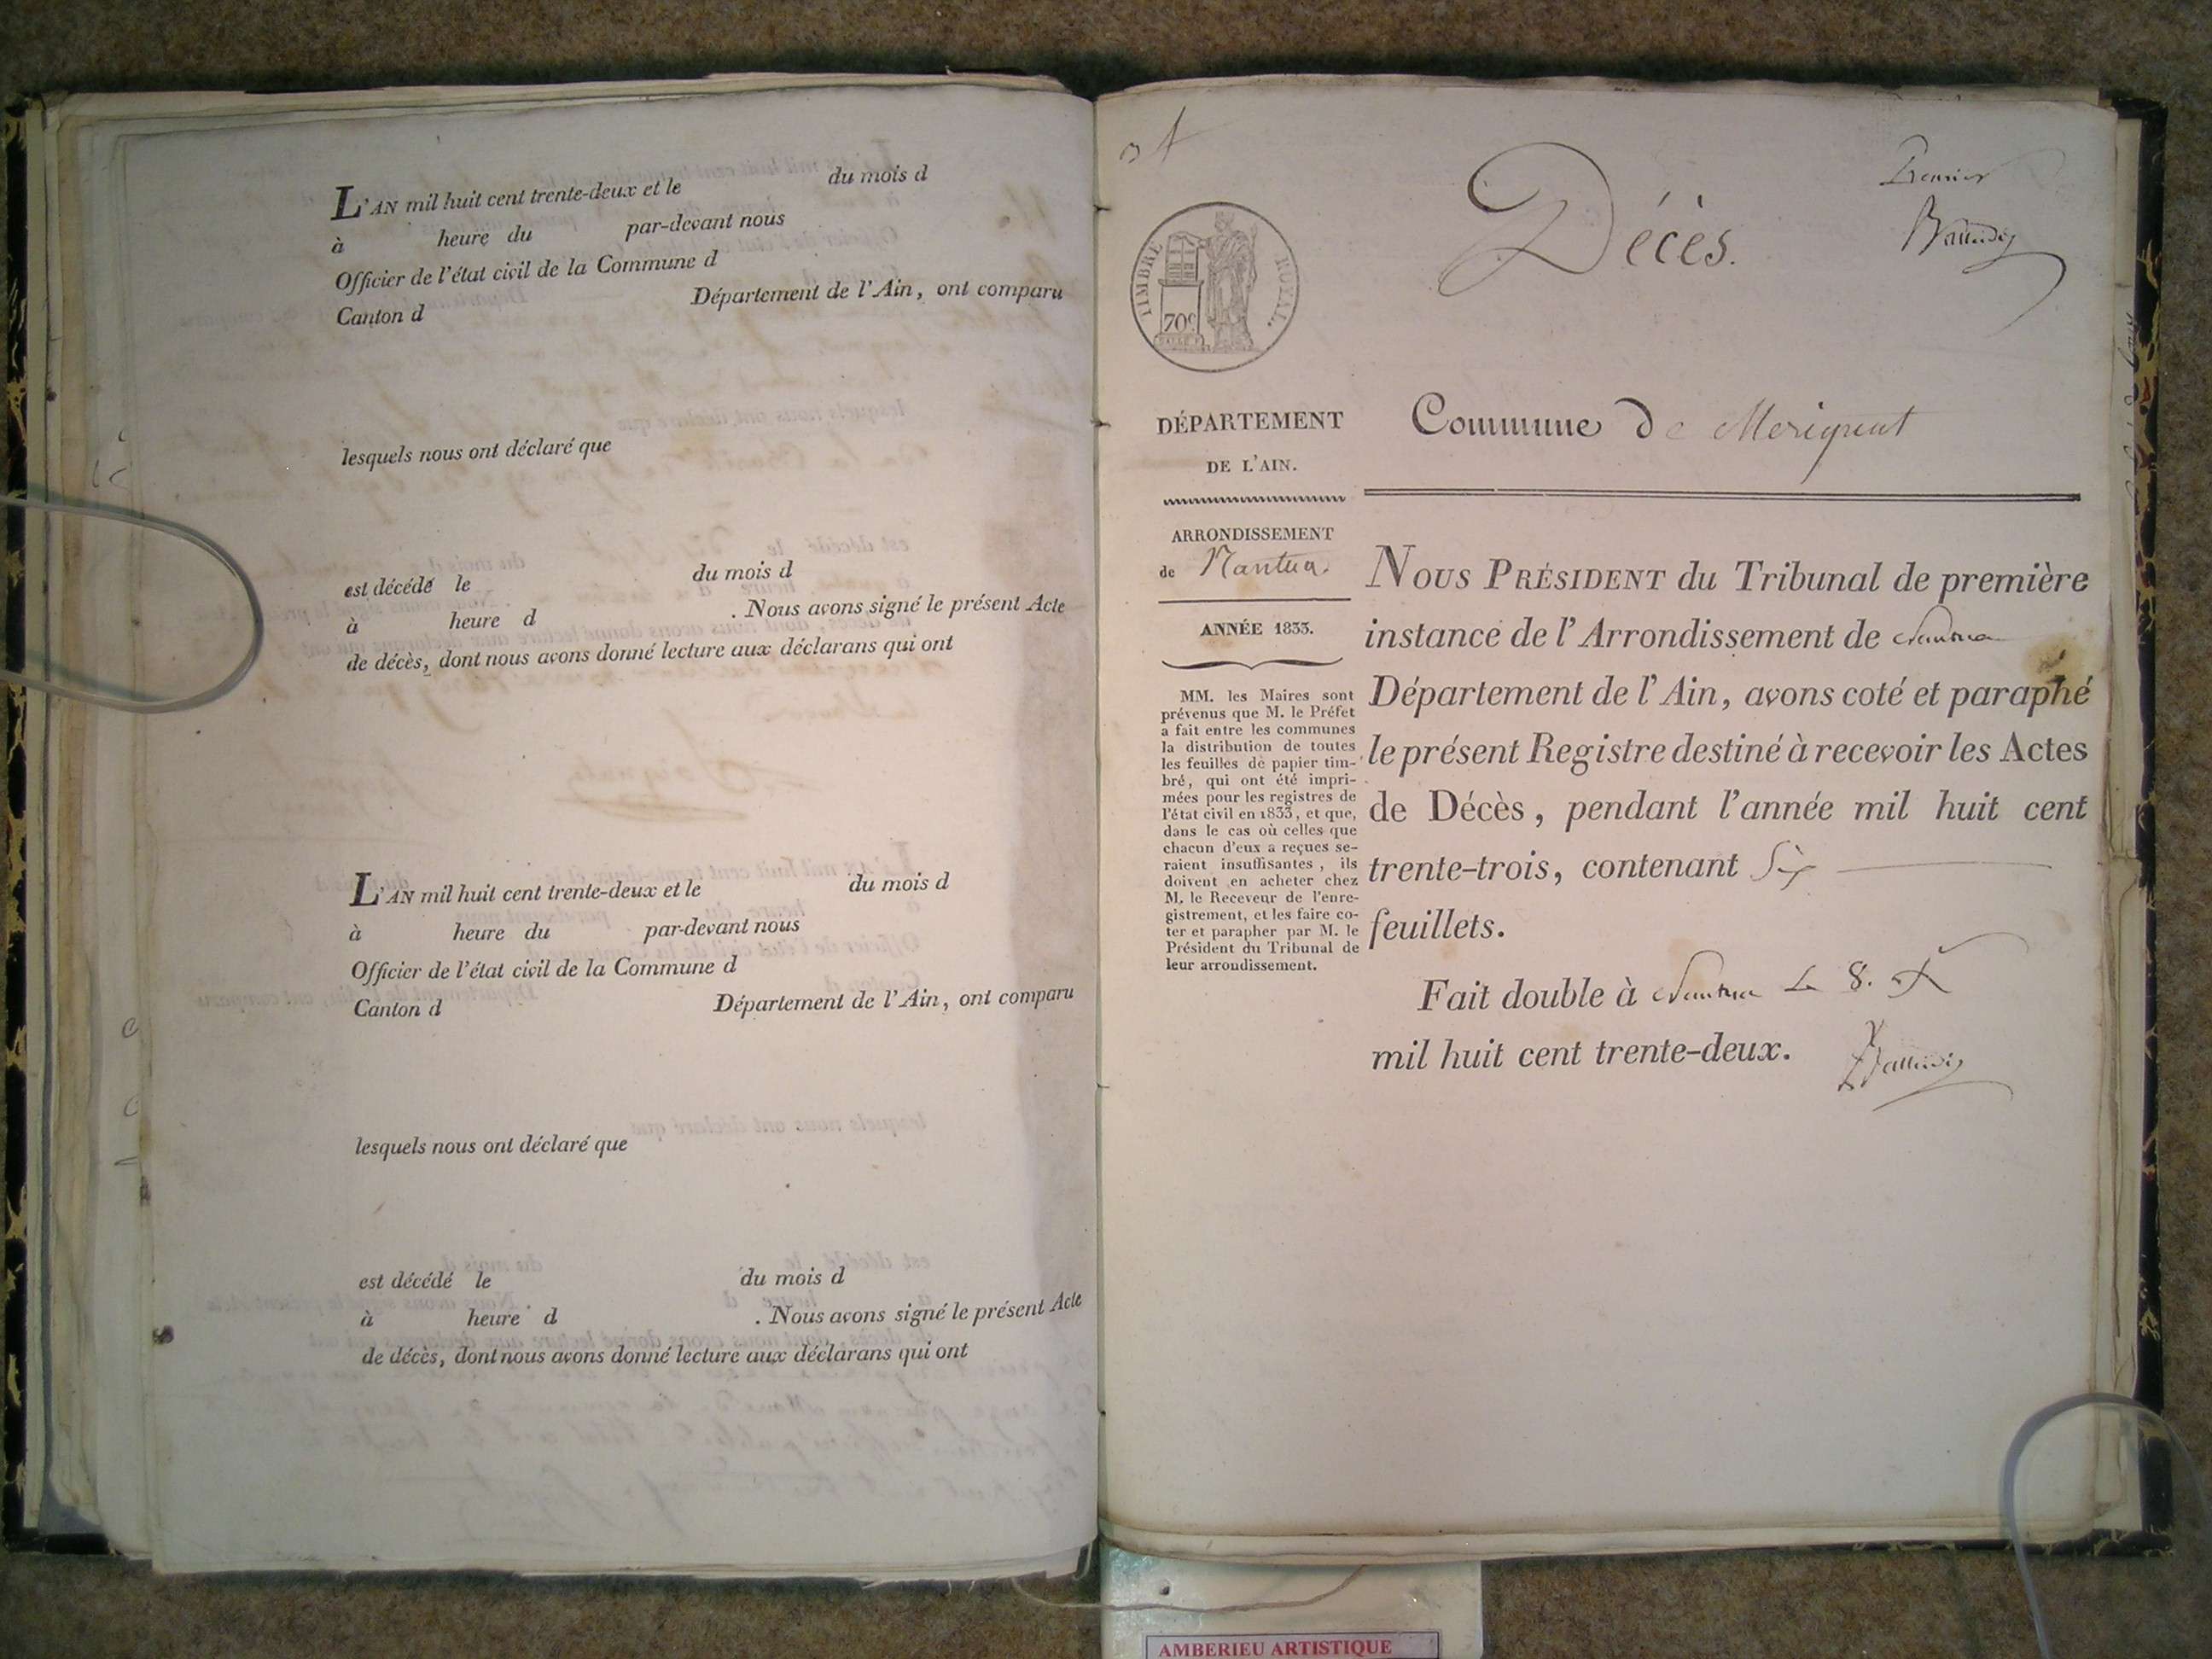 L'AN mil huit cent trente-deux et le du mois d
à heure du par-devant nous
Officier de l'état civil de la Commune d
Canton d Département de l'Ain, ont comparu
lesquels nous ont déclaré que
est décédé le du mois d
à heure d . Nous avons signé le présent Acte
de décès, dont nous avons donné lecture aux déclarans qui ont
L'AN mil huit cent trente-deux et le du mois d
à heure du par-devant nous
Officier de l'état civil de la Commune d
Canton d Département de l'Ain, ont comparu
lesquels nous ont déclaré que
est décédé le du mois d
à heure d . Nous avons signé le présent Acte
de décès, dont nous avons donné lecture aux déclarans qui ont
Premier
Décès.
TIMBRE ROYAL.
70c
DÉPARTEMENT
DE L'AIN.
ARRONDISSEMENT
de Nantua.
ANNÉE 1833.
MM. les Maires sont
prévenus que M. le Préfet
a fait entre les communes
la distribution de toutes
les feuilles de papier tim-
bré, qui ont été impri-
mées pour les registres de
l'état civil en 1833, et que,
dans le cas où celles que
chacun d'eux a reçues se-
raient insuffisantes, ils
doivent en acheter chez
M. le Receveur de l'enre-
gistrement, et les faire co-
ter et parapher par M. le
Président du Tribunal de
leur arrondissement.
Commune de Merignat
NOUS PRÉSIDENT du Tribunal de première
instance de l'Arrondissement de Nantua
Département de l'Ain, avons coté et paraphé
le présent Registre destiné à recevoir les Actes
de Décès, pendant l'année mil huit cent
trente-trois, contenant Six
feuillets.
Fait double à Nantua le 8.
mil huit cent trente-deux.
AMBERIEU ARTISTIQUE